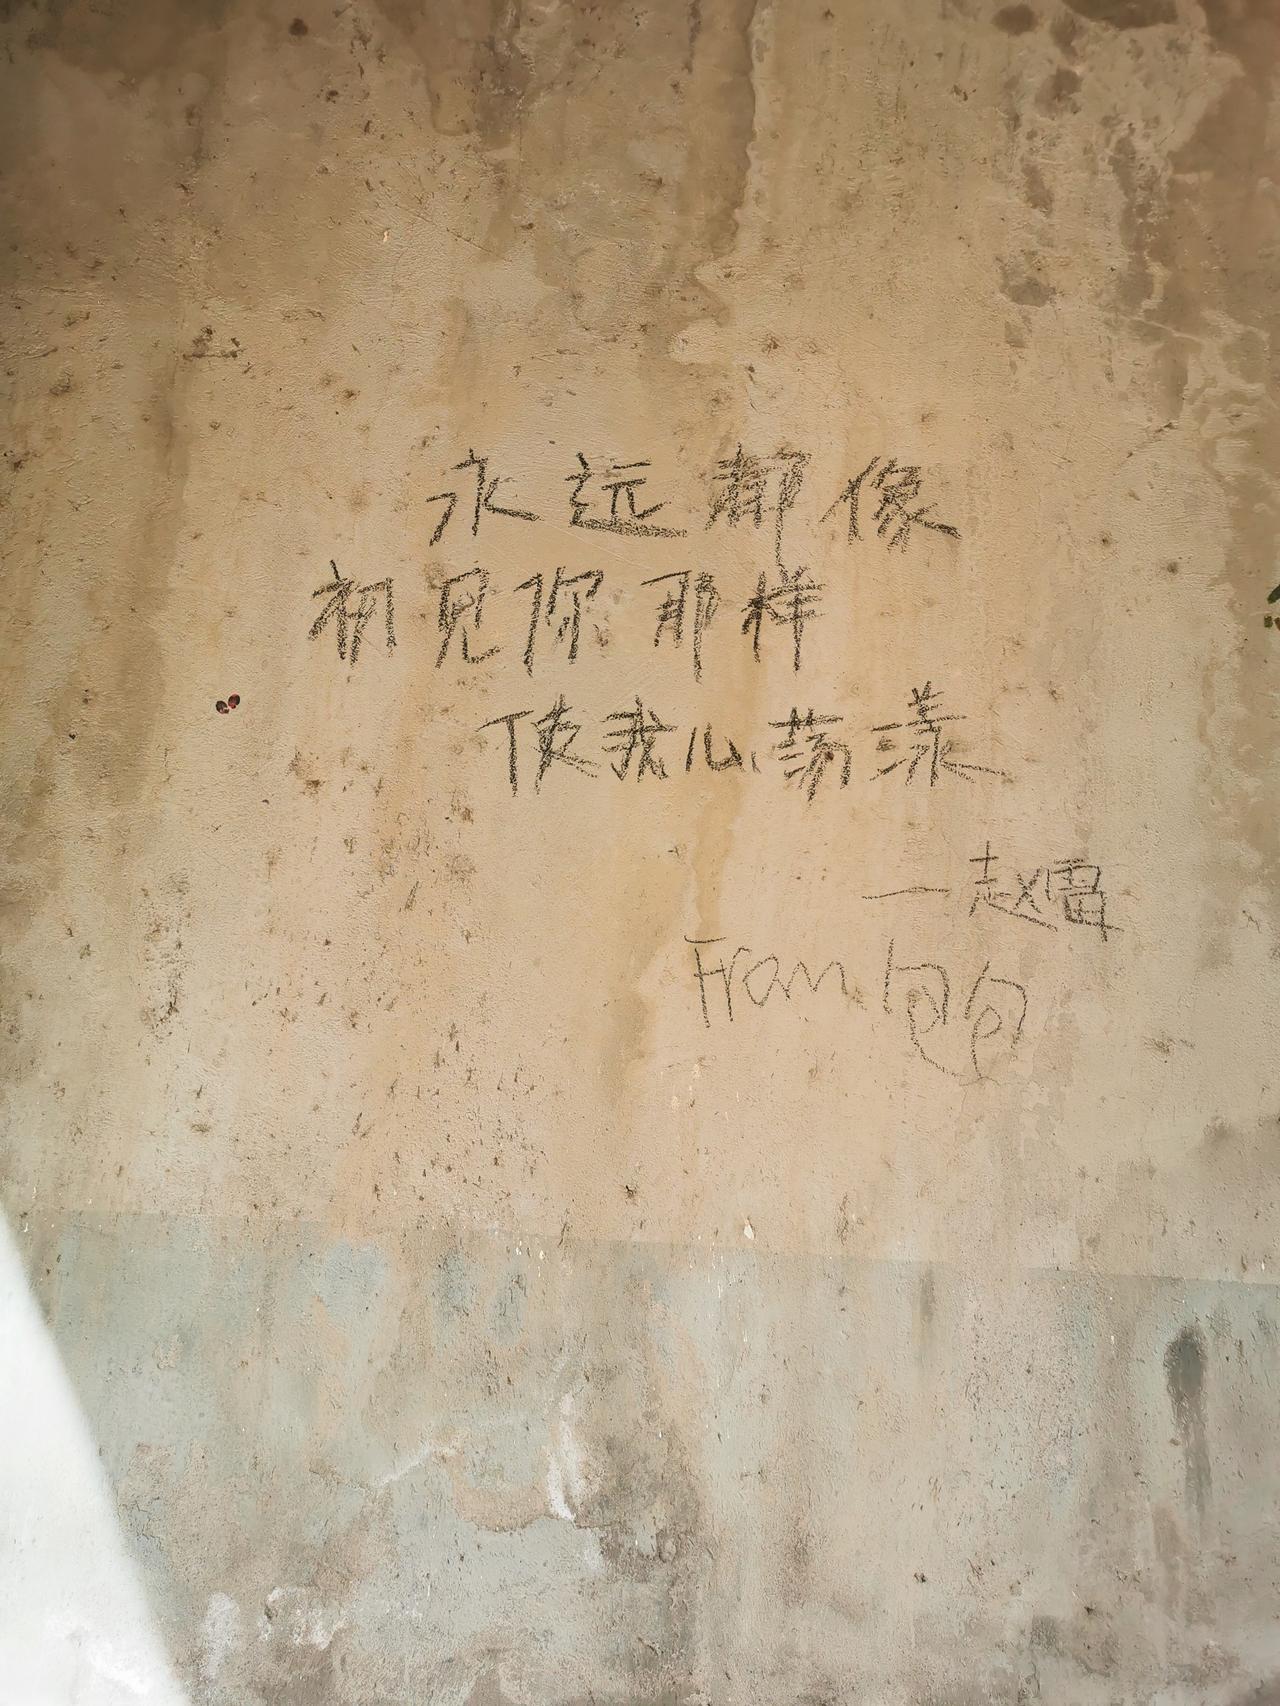 永远都像
初见你那样
使我心荡漾
—赵雷
From 包包